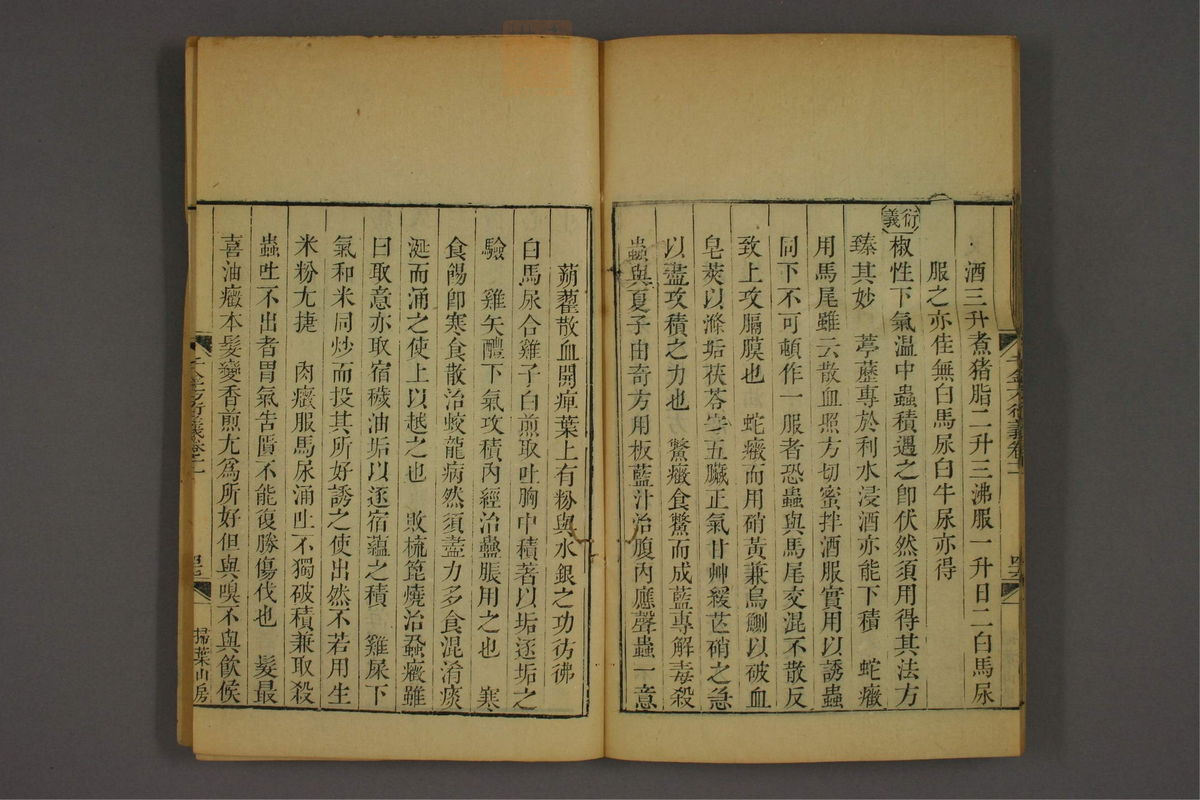 酒三升煮猪脂二升三沸服一升日二白馬尿
服之亦佳無白馬尿白牛尿亦得
衍義
椒性下氣温中蟲積遇之卽伏然須用得其法方
臻其妙　葶藶專於利水浸酒亦能下積　蛇癥
用馬尾雖云散血照方切蜜拌酒服實用以誘蟲
同下不可頓作一服者恐蟲與馬尾交混不散反
致上攻膈膜也　蛇癥而用硝黃兼烏鰂以破血
皂莢以滌垢茯苓安五臟正氣甘艸緩芒硝之急
以盡攻積之力也　鱉癥食鱉而成藍專解毒殺
蟲與夏子由奇方用板藍汁治腹內應聲蟲一意
蒴藋散血開痺葉上有粉與水銀之功彷彿
白馬尿合雞子白煎取吐胸中積著以垢逐垢之
驗　雞矢醴下氣攻積內經治蠱脹用之也　寒
食餳卽寒食散治蛟龍病然須盡力多食混淆痰
涎而涌之使上以越之也　敗梳箆燒治蝨癥雖
曰取意亦取宿穢油垢以逐宿蘊之積　雞屎下
氣和米同炒而投其所好誘之使出然不若用生
米粉尤捷　肉癥服馬尿涌吐不獨破積兼取殺
蟲吐不出者胃氣告匱不能復勝傷伐也　髮最
喜油癥本髮變香煎尤爲所好但與嗅不與飲候
千金方衍義卷十一
掃葉山房